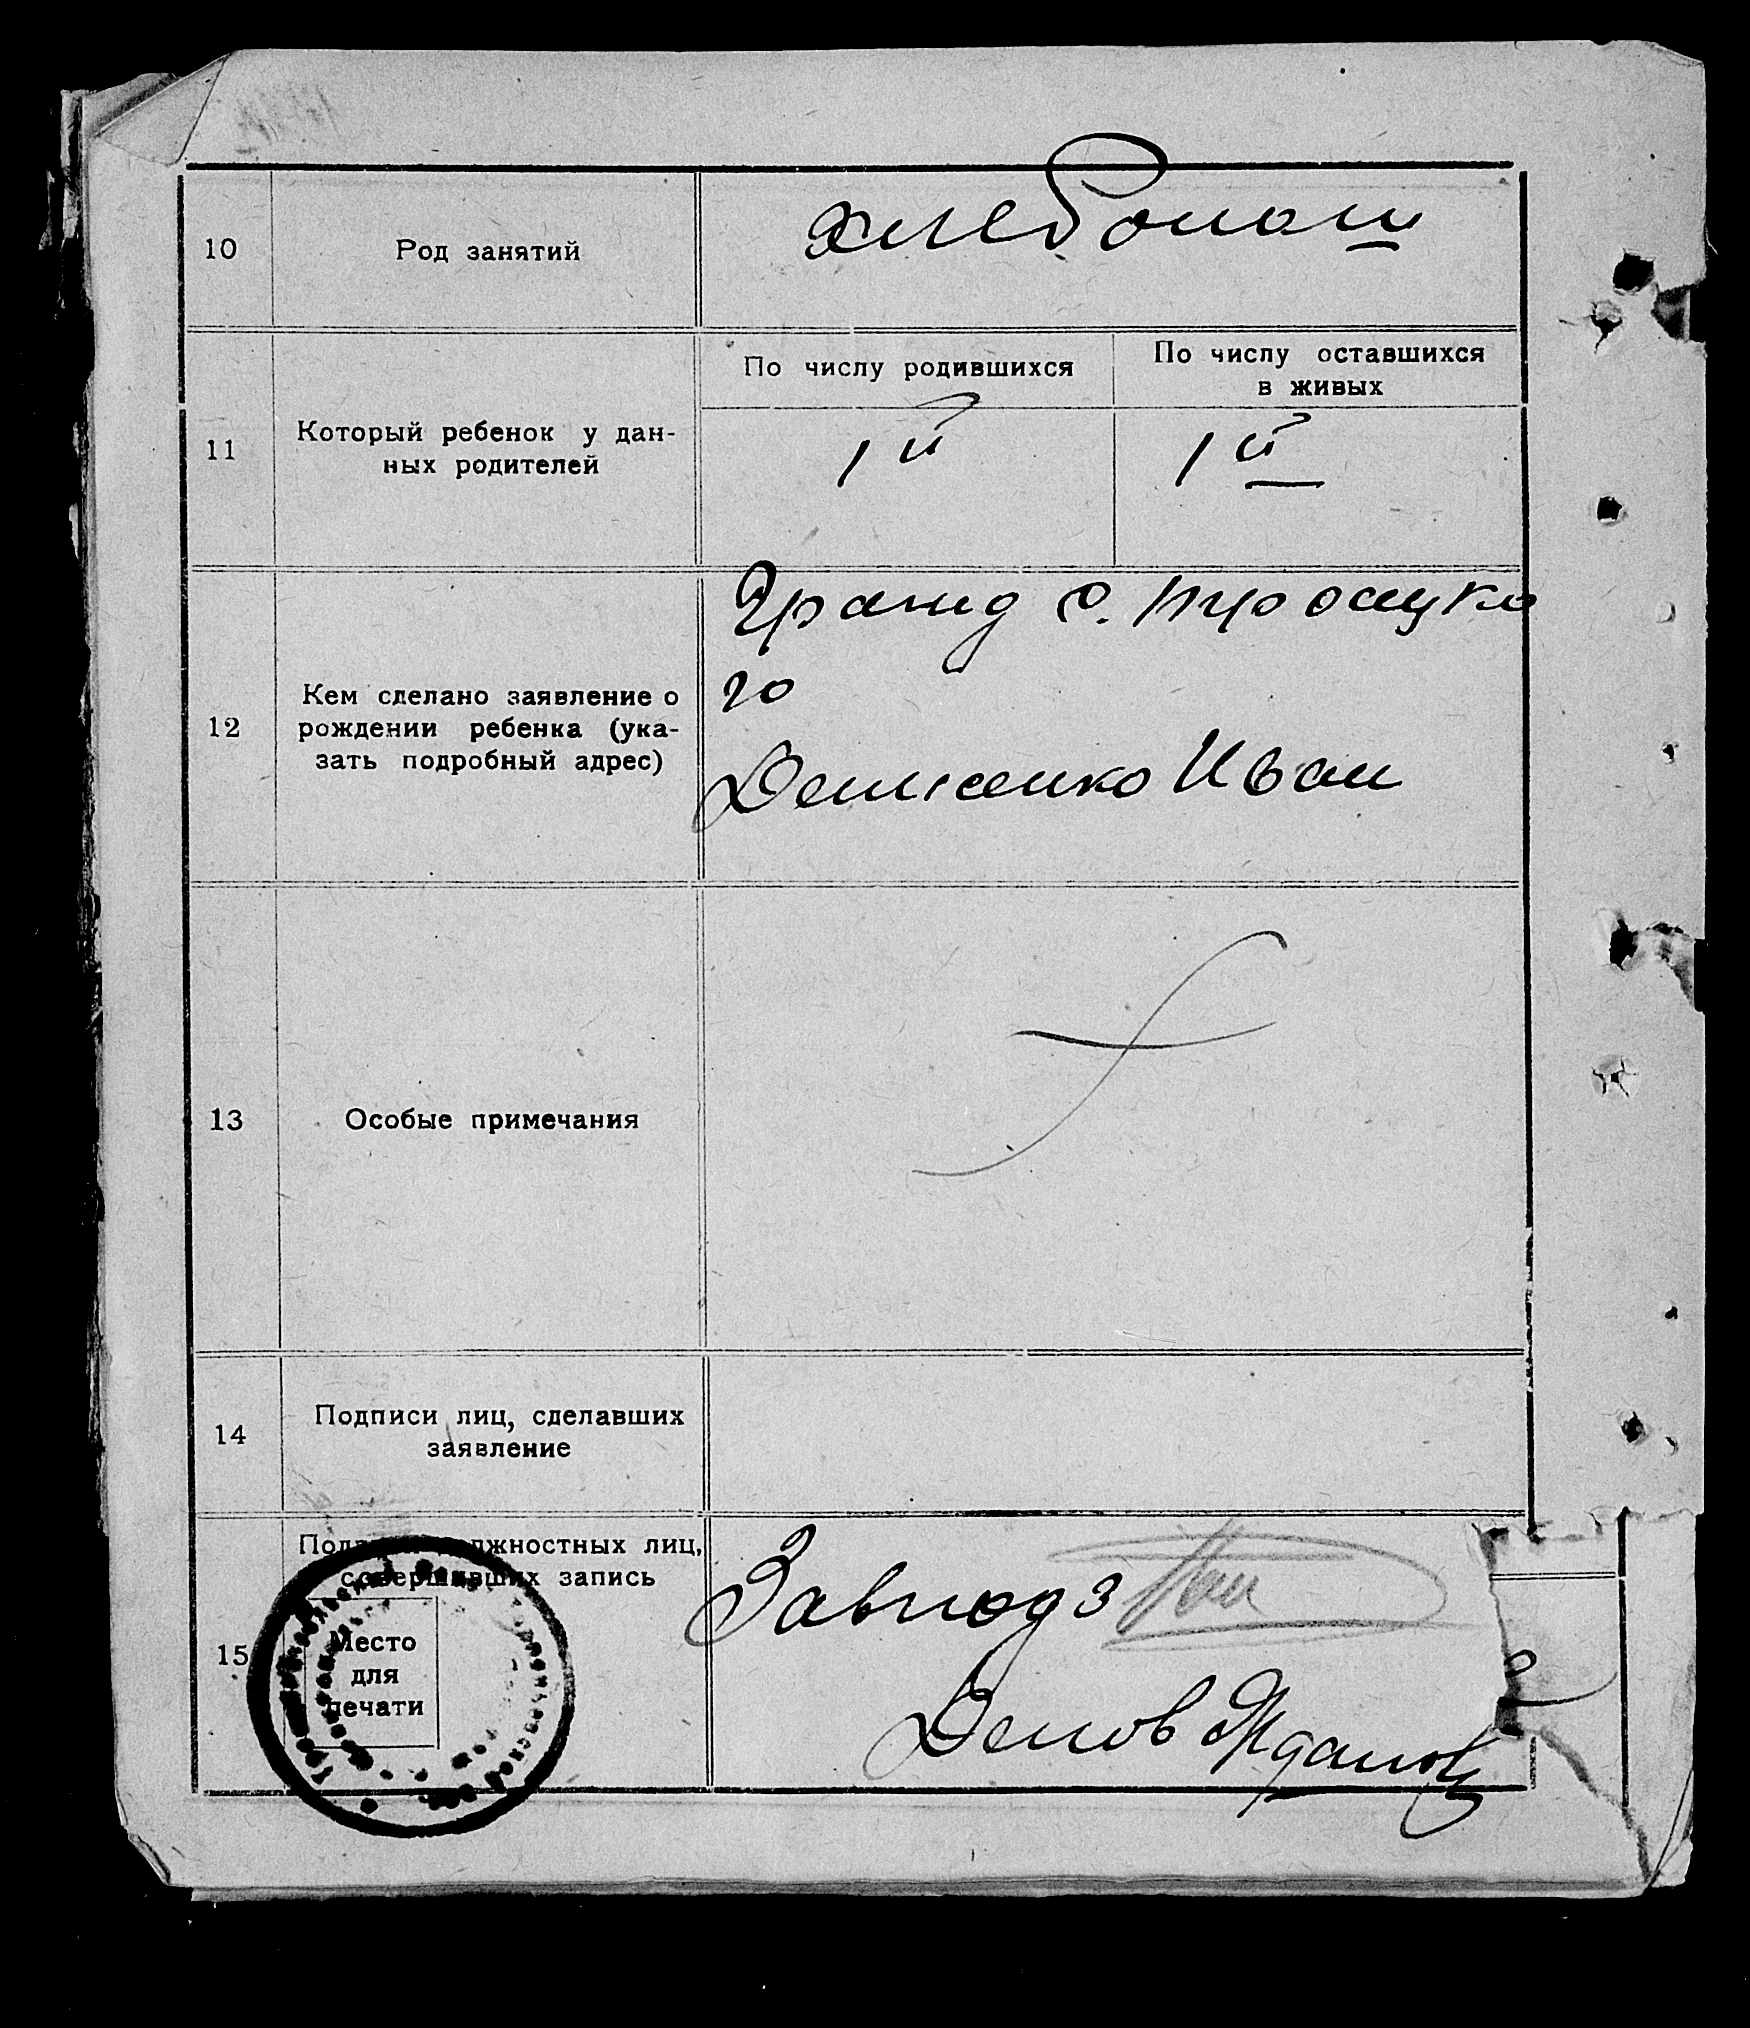 10
Род занятий
хлебопаш
11
Который ребенок у дан-
ных родителей
По числу родившихся
По числу оставшихся
в живых
1й
1й
12
Кем сделано заявление о
рождении ребенка (ука-
зать подробный адрес)
Гражид с.
го
Денисенко Иван
13
Особые примечания
14
Подписи лиц, сделавших
заявление
15
должностных лиц,
совершивших запись
Место
для
печати
Делов